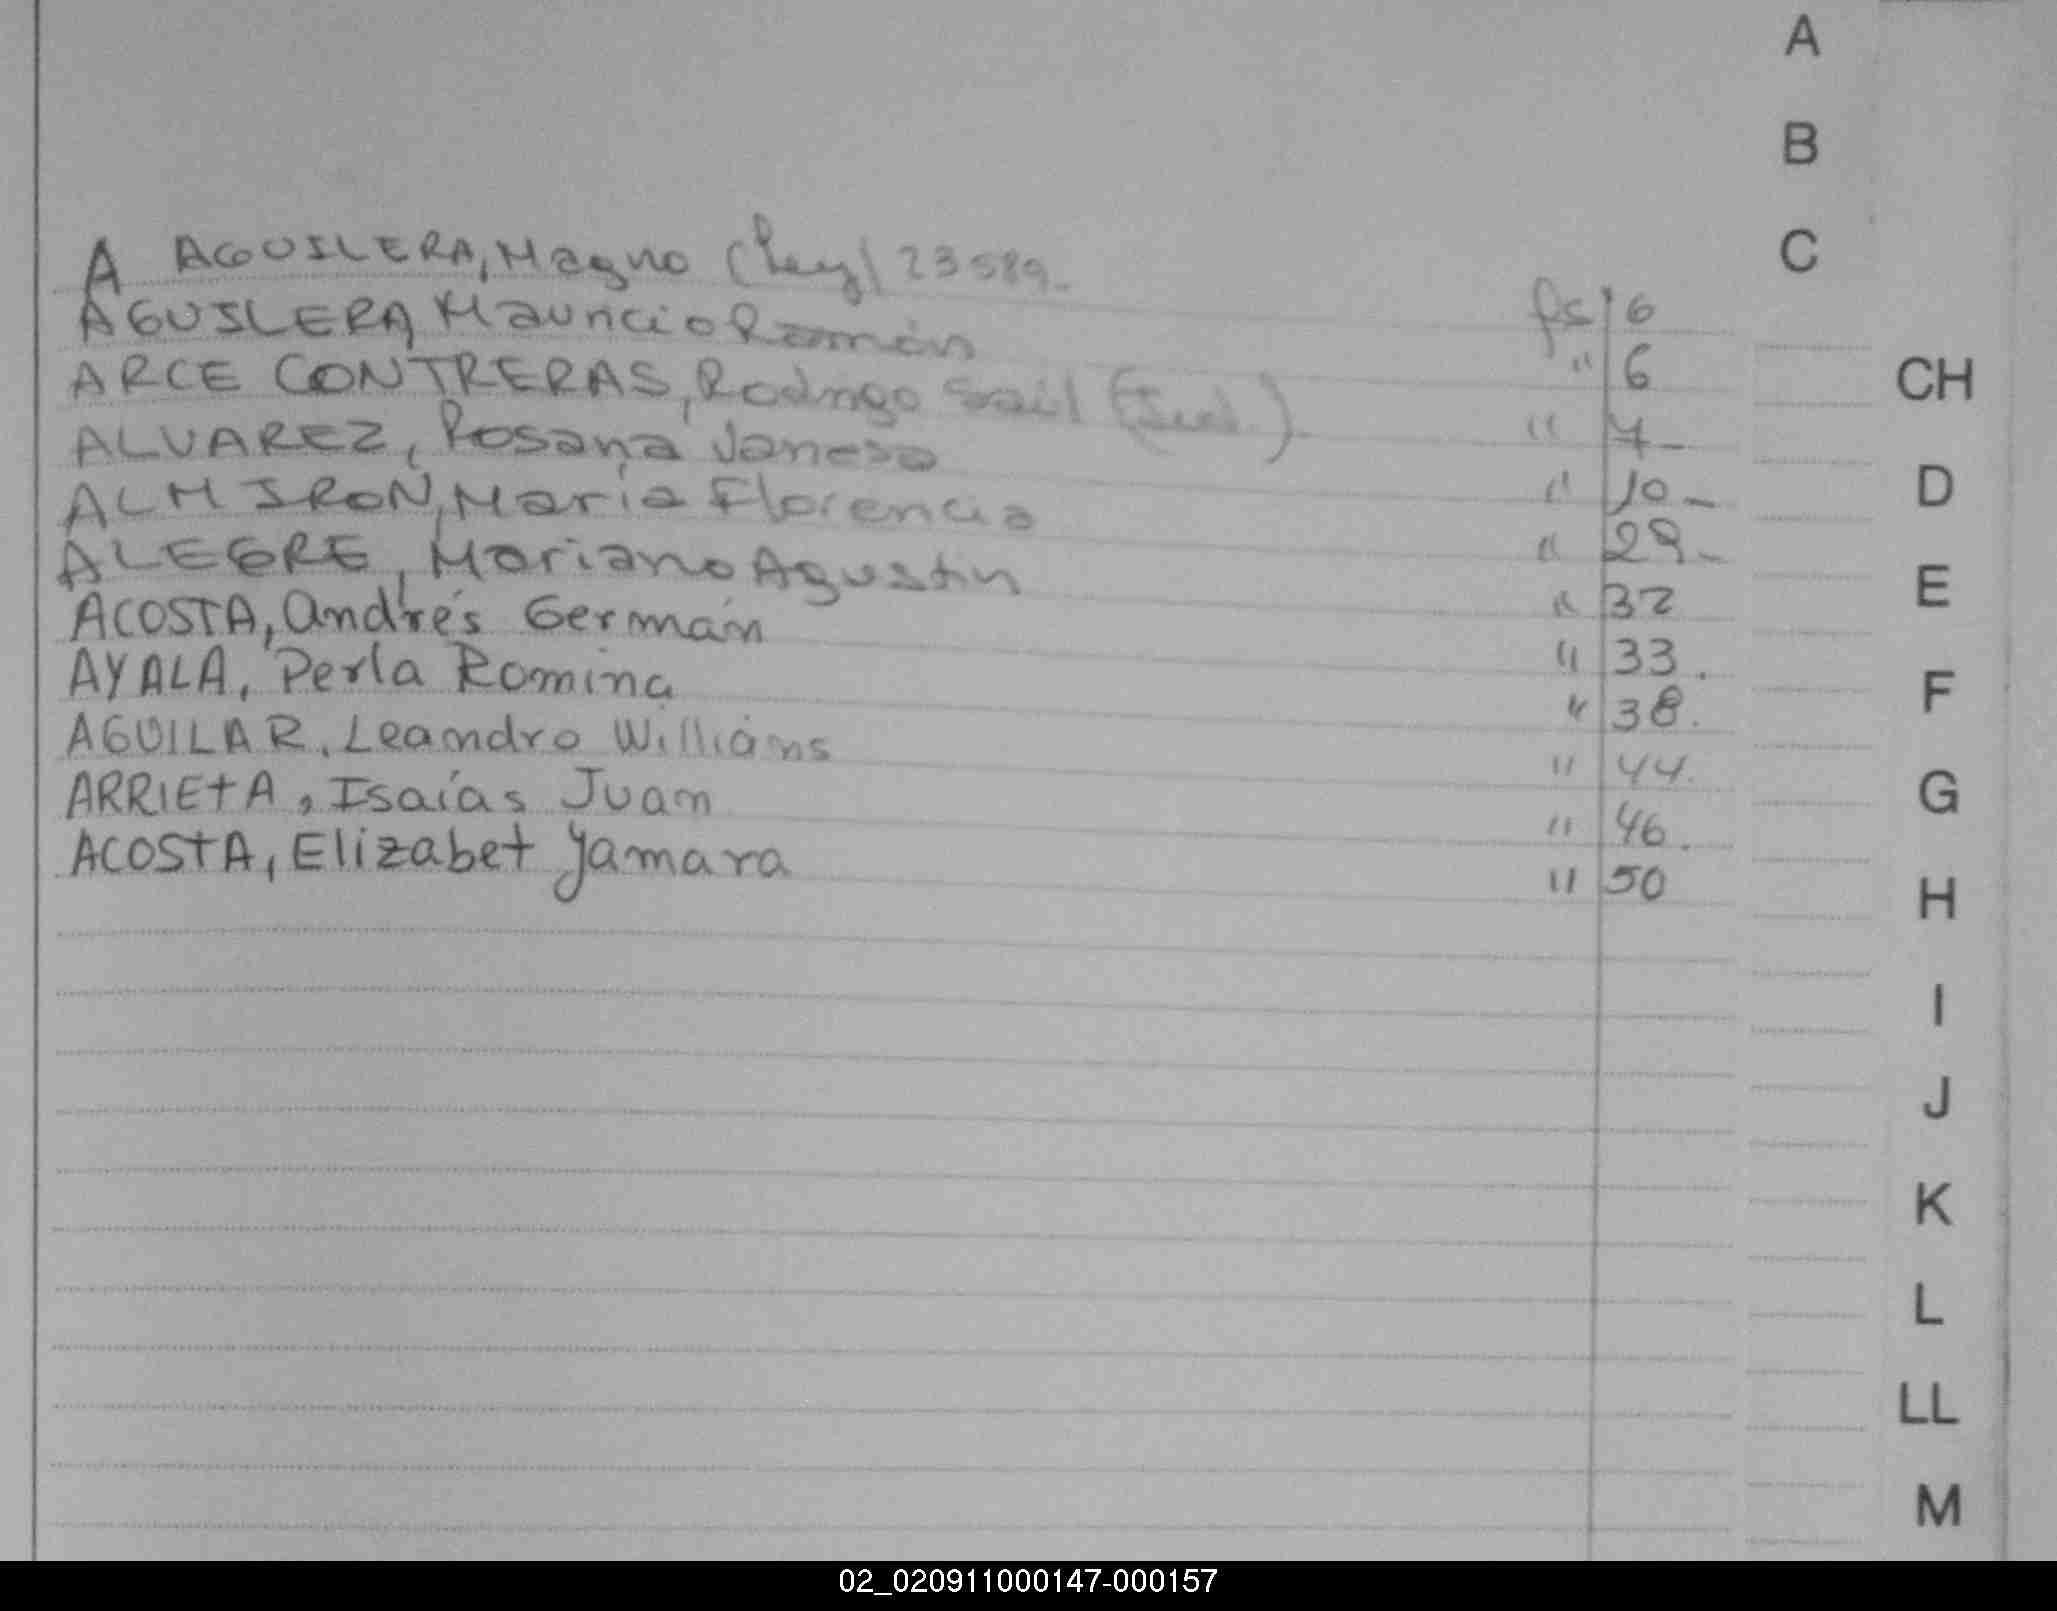 A
B
C
A AGUILERA, Magno (ley) 23589.-
AGUILERA, Mauricio Román fs 6
ARCE CONTRERAS, Rodrigo (Jud.) " 6
ALVAREZ, Rosana Vanesa " 7-
ALMIRON, María Florencia " 10-
ALEGRE, Mariano Agustin " 29-
ACOSTA, Andrés Germán " 32
AYALA, Perla Romina " 33.
AGUILAR, Leandro Willians " 38.
ARRIETA, Isaías Juan " 44.
ACOSTA, Elizabet Yamara " 46.
" 50
CH
D
E
F
G
H
I
J
K
L
LL
M
02_020911000147-000157